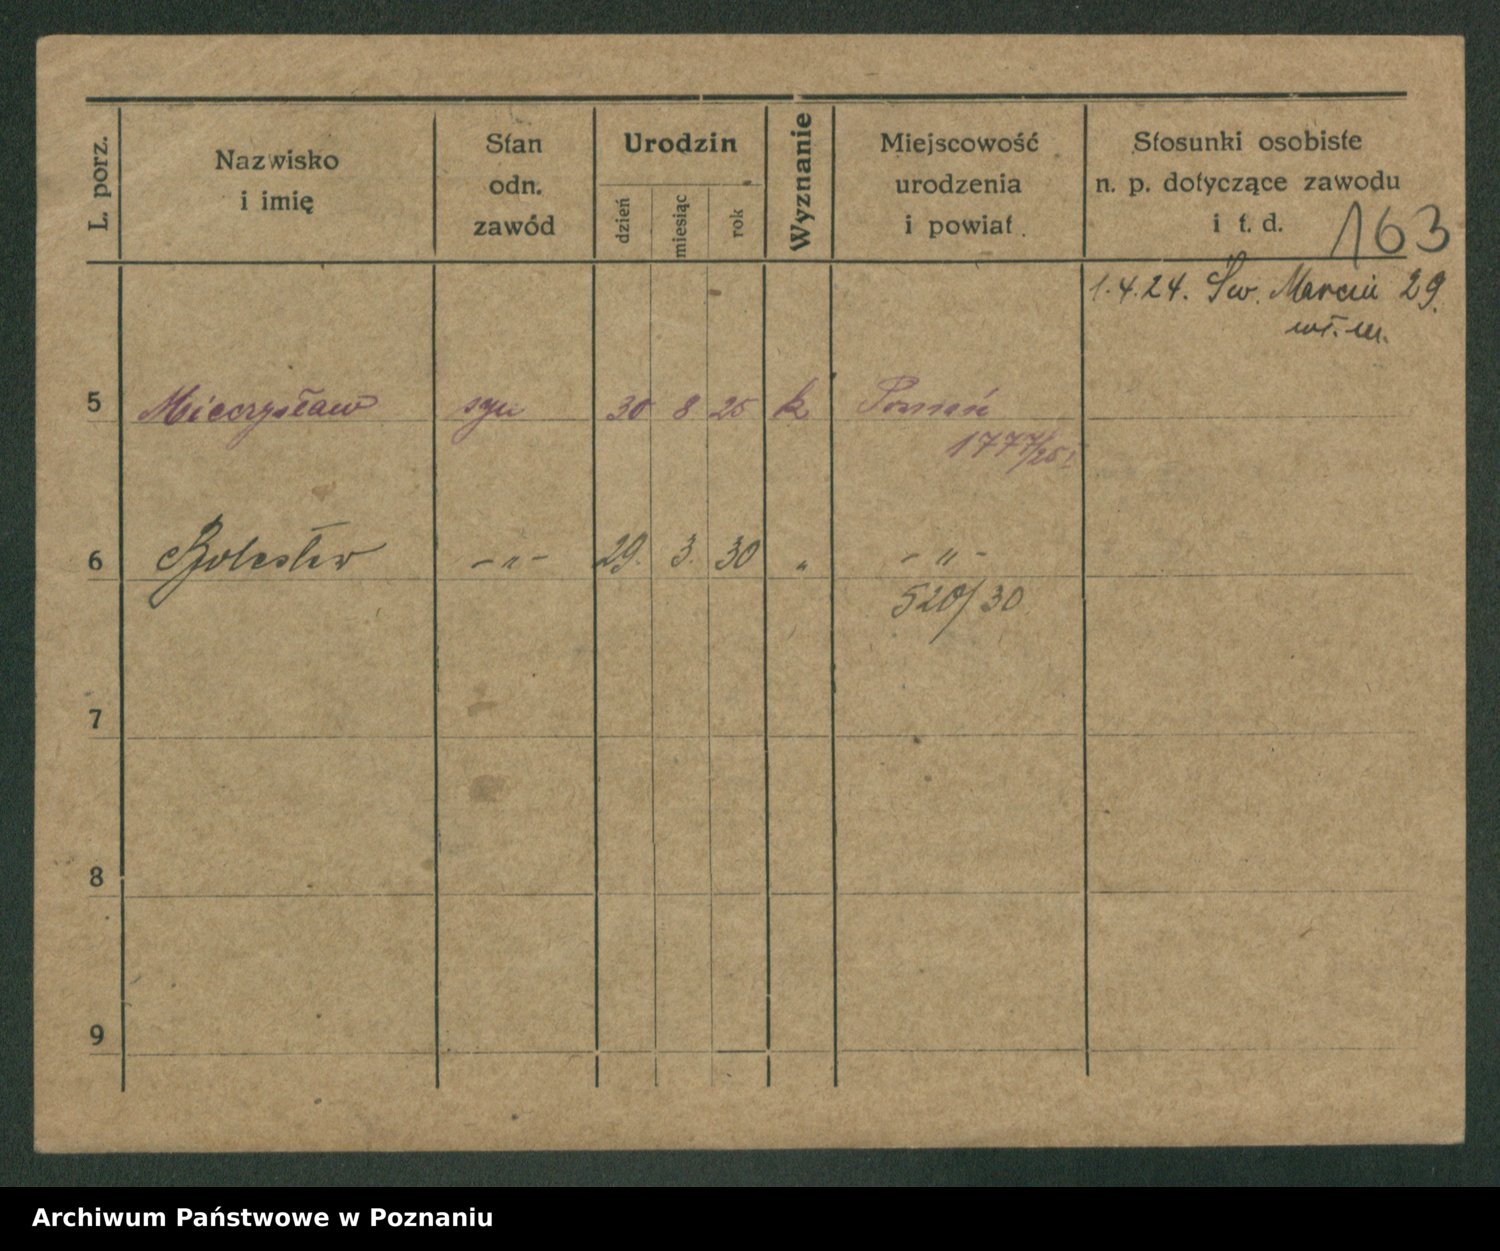 L. porz.
Nazwisko
i imię
Stan
odn.
zawód
Urodzin
dzień
miesiąc
rok
Wyznanie
Miejscowość
urodzenia
i powiat
Stosunki osobiste
n. p. dotyczące zawodu
i t. d.
163
1.4.24. Św. Marcin 29.
wł. m.
5 Mieczysław syn 30 8 25 k Poznań
1777/25
6 Bolesław – „ – 29. 3. 30 „ – „ –
520/30
7
8
9
Archiwum Państwowe w Poznaniu